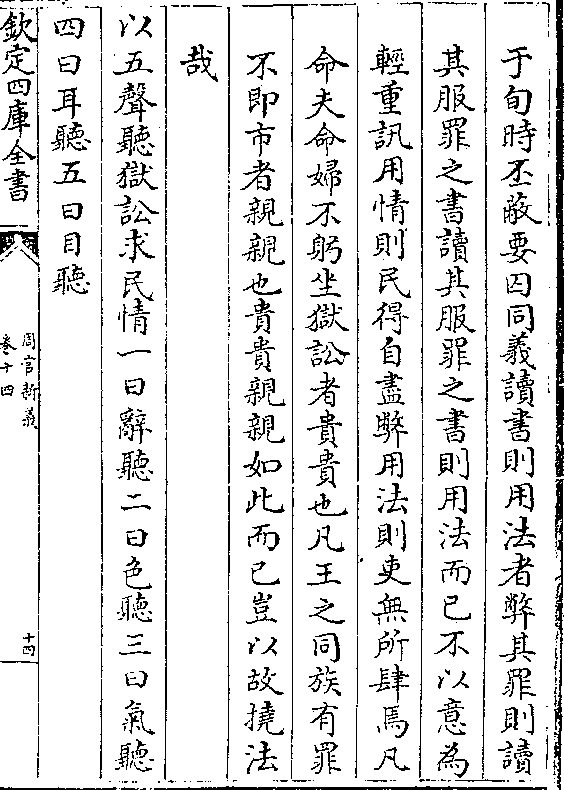 于旬時丕蔽要囚同義讀書則用法者弊其罪則讀
其服罪之書讀其服罪之書則用法而已不以意為
輕重訊用情則民得自盡弊用法則吏無所肆焉凡
命夫命婦不躬坐獄訟者貴貴也凡王之同族有罪
不即市者親親也貴貴親親如此而已豈以故撓法
哉
以五聲聽獄訟求民情一曰辭聽二曰色聽三曰氣聽
四曰耳聽五曰目聽
欽定四庫全書
周官新義
卷十四
十四